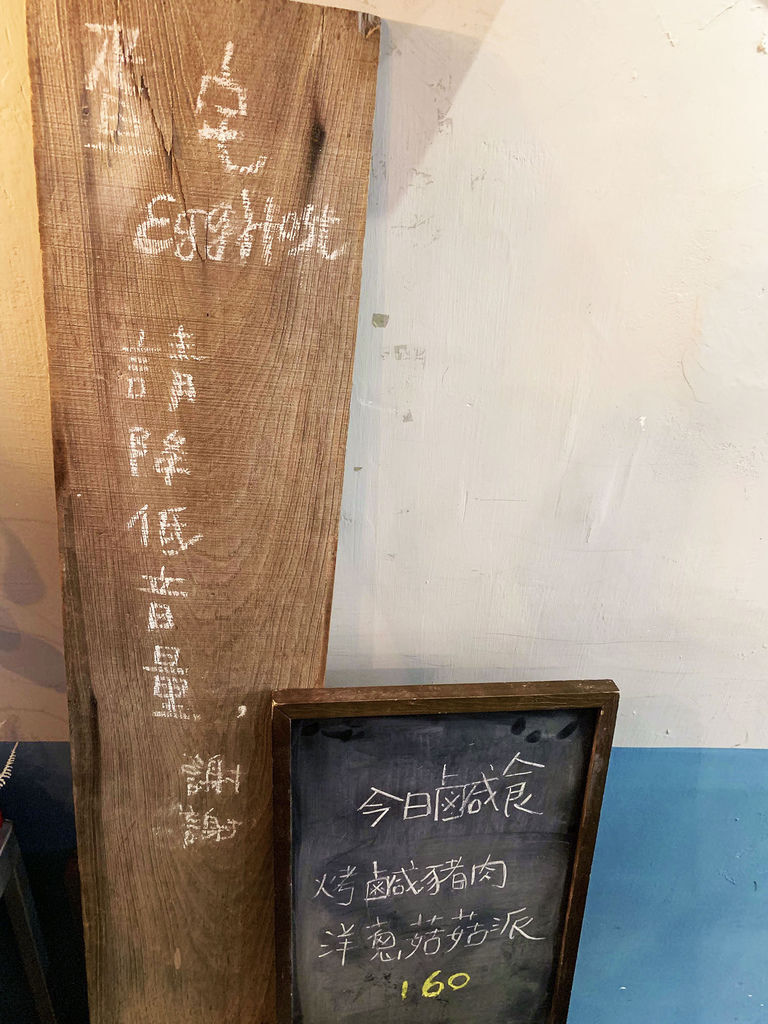 疍宅
EggHost
請降低音量，
謝謝
今日鹹食
烤鹹豬肉
洋蔥菇菇派
160